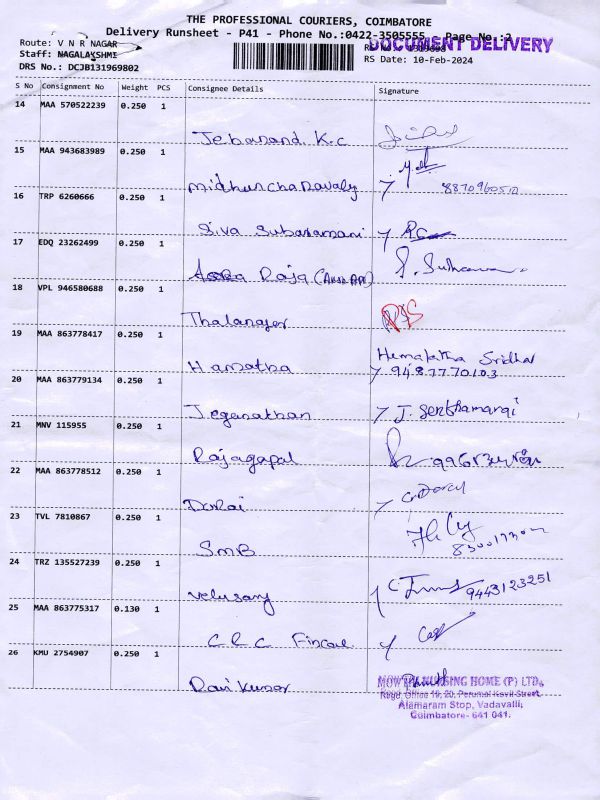 THE PROFESSIONAL COURIERS, COIMBATORE
Delivery Runsheet - P41 - Phone No.:0422-3505555 - Page No.:2
DOCUMENT DELIVERY
Route: V N R NAGAR
Staff: NAGALAKSHMI
DRS No.: DCJB131969802
RS Date: 10-Feb-2024
S No Consignment No Weight PCS Consignee Details Signature
14 MAA 570522239 0.250 1
Jebanand. K.C
15 MAA 943683989 0.250 1
8870960510
16 TRP 6260666 0.250 1
Siva Subaramani
17 EDQ 23262499 0.250 1
Raja
18 VPL 946580688 0.250 1
Thalanager
19 MAA 863778417 0.250 1
Hamatha
Hemalatha Sridhar
9487770103
20 MAA 863779134 0.250 1
Jeganathan
J. Senthamarai
21 MNV 115955 0.250 1
Rajagapal
22 MAA 863778512 0.250 1
Dorai
23 TVL 7810867 0.250 1
SMB
24 TRZ 135527239 0.250 1
Velusamy
9443123251
25 MAA 863775317 0.130 1
26 KMU 2754907 0.250 1
Ravi Kumar
NURSING HOME (P) LTD.,
Regd. Office 19, 20, Perumal Kovil Street,
Alamaram Stop, Vadavalli,
Coimbatore- 641 041.